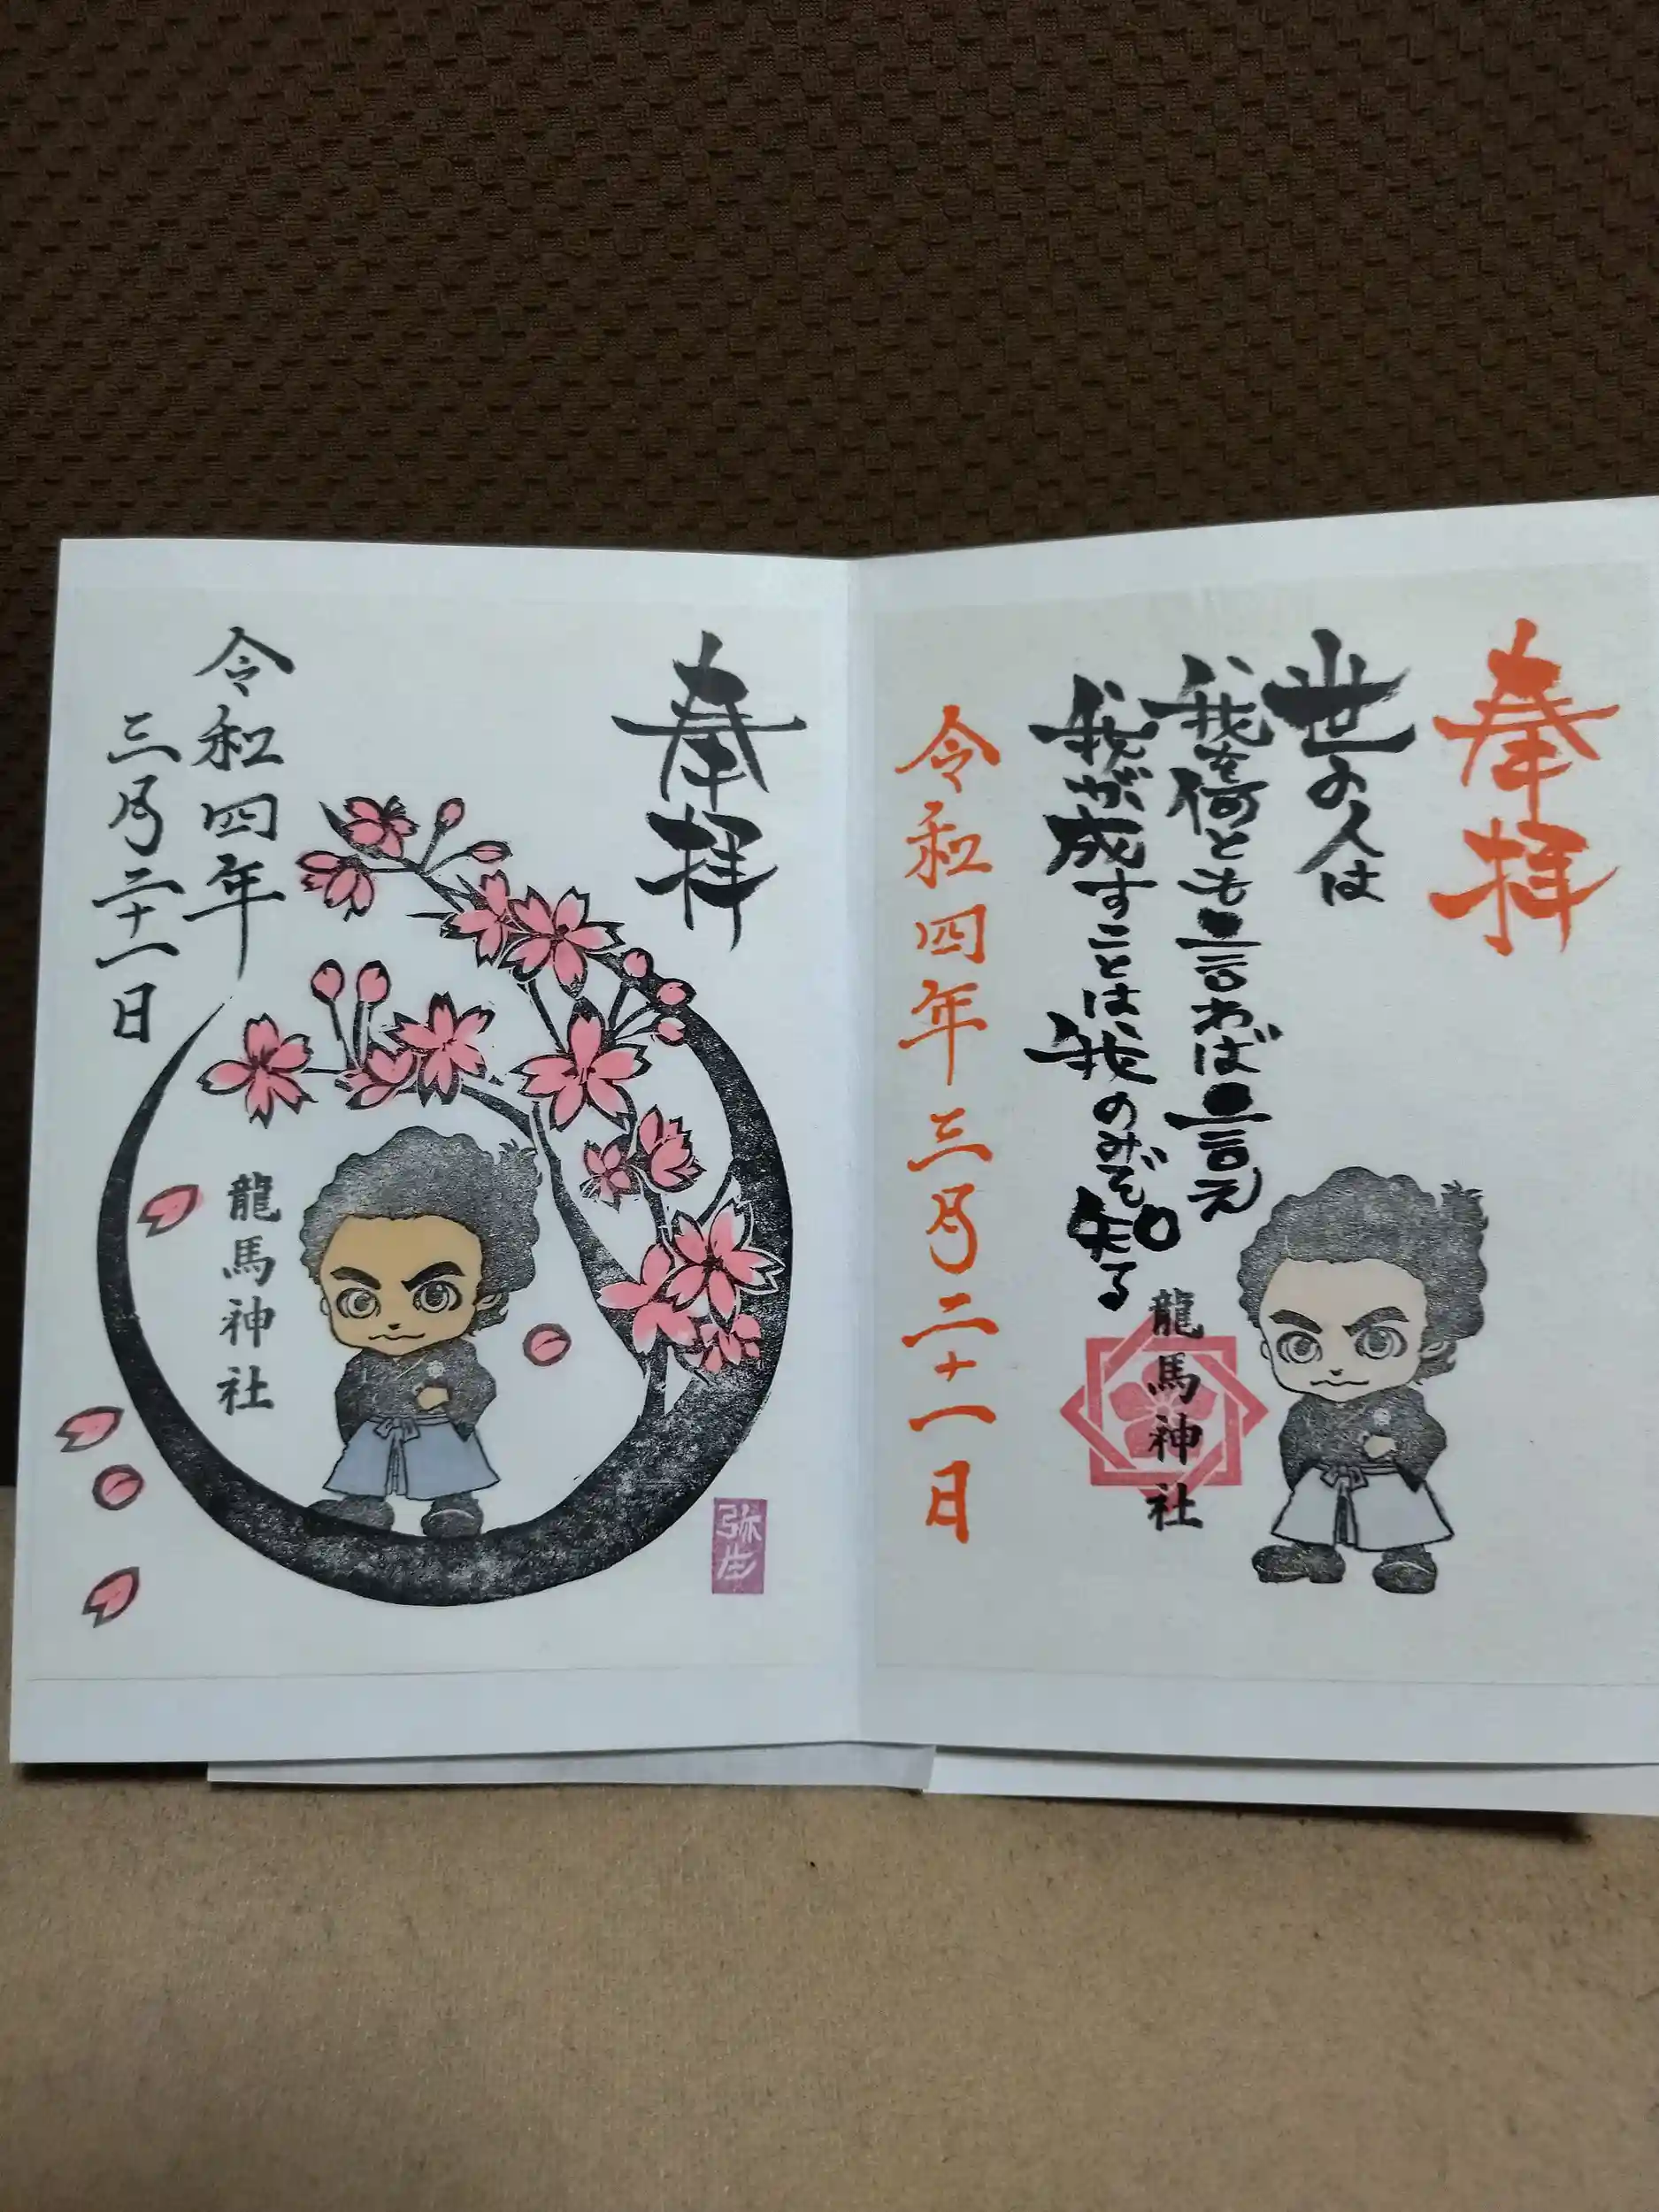 奉拝
世の人は
我を何とも言わば言え
我が成すことは、我のみぞ知る
龍馬神社
令和四年三月二十一日
奉拝
令和四年
三月二十一日
龍馬神社
弥生